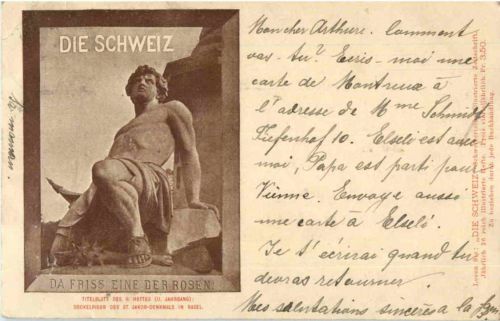 DIE SCHWEIZ
DA FRISS EINE DER ROSEN.
TITELBLATT DES 11. HEFTES (II. JAHRGANG):
SOCKELFIGUR DES ST. JAKOB-DENKMALES IN BASEL.
Mon cher Arthure. Comment
vas-tu? Ecris-moi une
carte de Montreux à
l'adresse de Mme Schmidt
Tiefenhof 10. Elselé est avec
moi, Papa est parti pour
Vienne. Envoye aussi
une carte à Elselé.
Je t'écrirai quand tu
devras retourner.
Mes salutations sincères a la
ta maman.
Lesen Sie: „DIE SCHWEIZ"
Jährlich 26 reich illustrierte Hefte. Preis vierteljährlich Fr. 3.50.
Zu beziehen durch jede Buchhandlung.